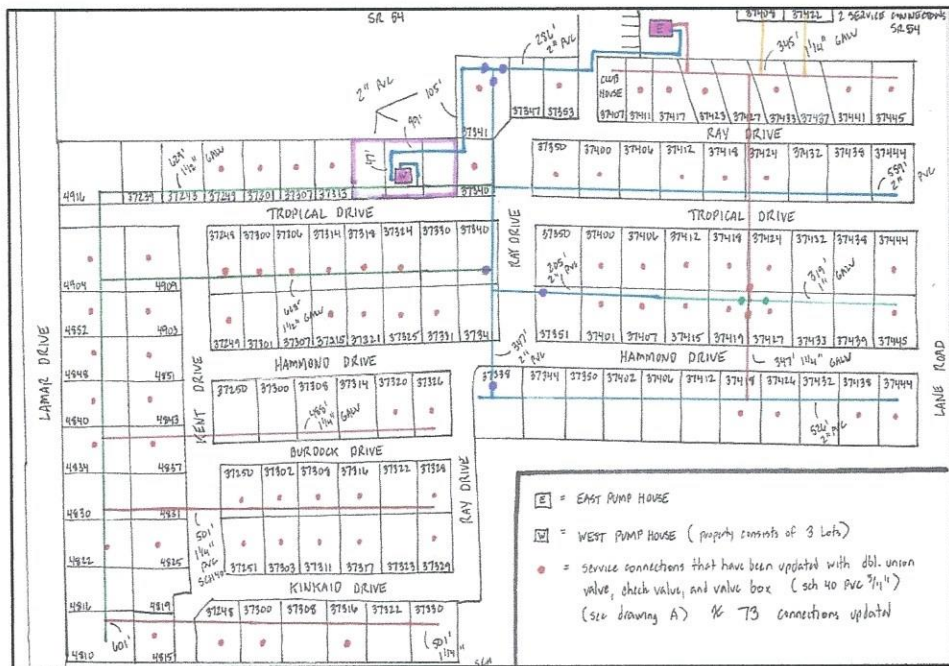 SR 54
37408 37422 2 SERVICE CONNECTIONS
SR 54
E
286'
2" PVC
345'
1 1/4" GALV
2" PVC
105'
99'
47'
W
37341
37347 37353
CLUB
HOUSE
37407 37411 37417 37423 37427 37433 37437 37441 37445
RAY DRIVE
629'
1 1/2" GALV
4916 37239 37243 37249 37301 37307 37313 37340
37350 37400 37406 37412 37418 37424 37432 37438 37444
559'
2" PVC
TROPICAL DRIVE
TROPICAL DRIVE
37248 37300 37306 37314 37318 37324 37330 37340
RAY DRIVE
37350 37400 37406 37412 37418 37424 37432 37438 37444
205'
2" PVC
319'
1" GALV
4904 4909
628'
1 1/2" GALV
4852 4903
37249 37301 37307 37315 37321 37325 37331 3734
37351 37401 37407 37415 37419 37427 37433 37439 37445
347'
2" PVC
HAMMOND DRIVE
HAMMOND DRIVE
347' 1 1/4" GALV
LAMAR DRIVE
KENT DRIVE
LANE ROAD
4848 4851
37250 37300 37308 37314 37320 37326
37338 37344 37350 37402 37406 37412 37418 37426 37432 37438 37444
485'
1 1/4" GALV
526'
2" PVC
4840 4843
BURDOCK DRIVE
RAY DRIVE
4834 4837
37250 37302 37308 37316 37322 37328
4830 4831
501'
1 1/4"
PVC
SCH 40
4822 4825
37251 37303 37311 37317 37323 37329
KINKAID DRIVE
4816 4819
37248 37300 37308 37316 37322 37330
601'
501'
1 1/4"
4810 4815
SCH
E = EAST PUMP HOUSE
W = WEST PUMP HOUSE (property consists of 3 Lots)
= service connections that have been updated with dbl. union
valve, check valve, and valve box (sch 40 PVC 3/4")
(see drawing A) 73 connections updated